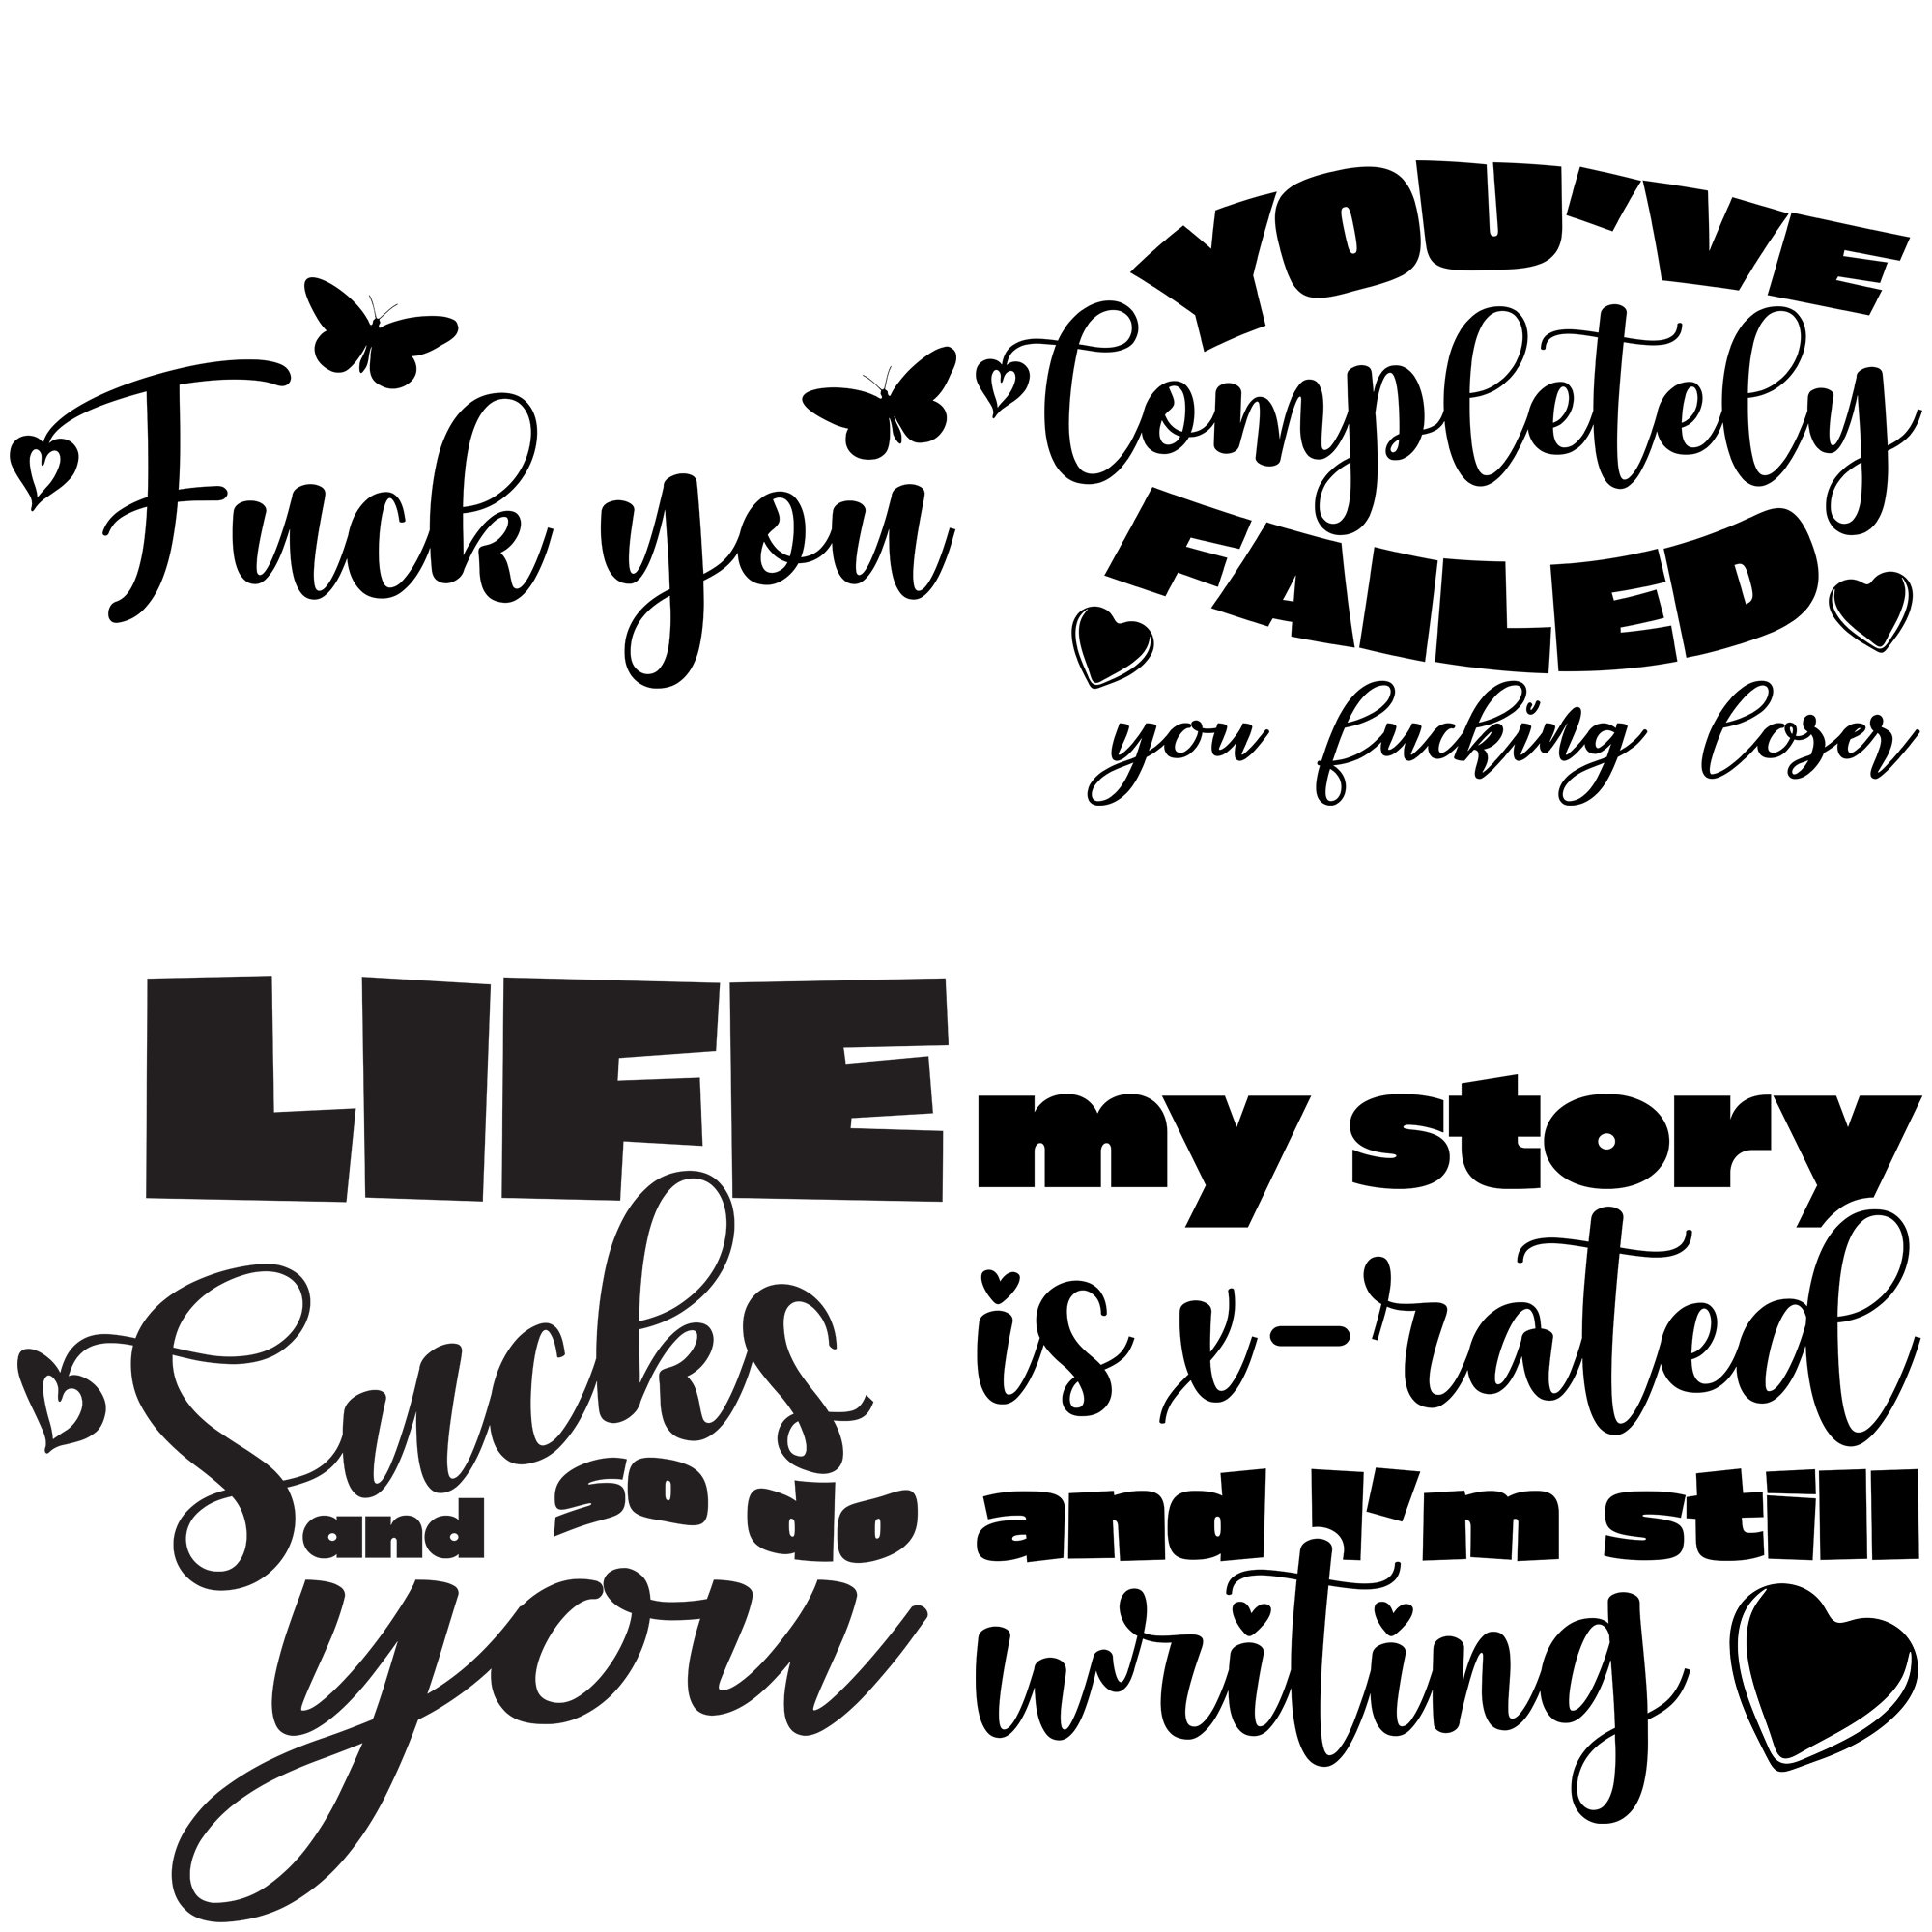 Fuck you
YOU'VE
Completely
FAILED
you fucking loser
LIFE
Sucks
and so do
you
my story
is x-rated
and I'm still
writing